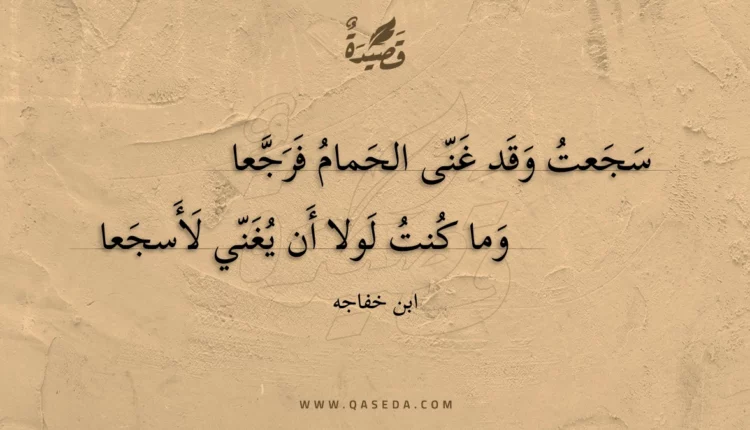 قَصِيدَةٌ
سَجَعتُ وَقَد غَنّى الحَمامُ فَرَجَّعا
وَما كُنتُ لَولا أَن يُغَنّي لَأَسجَعا
ابن خفاجه
WWW.QASEDA.COM